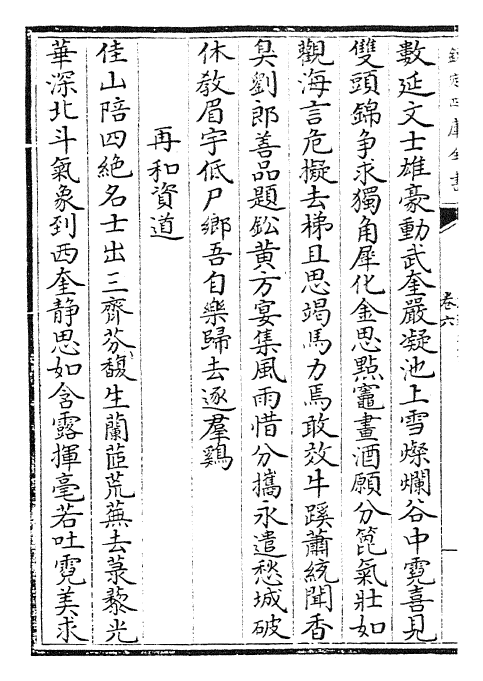 數延文士雄豪動武奎嚴凝池上雪燦爛谷中霓喜見
雙頭錦争求獨角犀化金思點竈畫酒願分篦氣壯如
觀海言危擬去梯且思竭馬力焉敢效牛蹊蕭統聞香
臭劉郎善品題鈆黄方宴集風雨惜分攜永遣愁城破
休教眉宇低尸鄉吾自樂歸去逐羣鷄
再和資道
佳山陪四絶名士出三齊芬馥生蘭茝荒蕪去菉藜光
華深北斗氣象到西奎静思如含露揮毫若吐霓美求
卷六